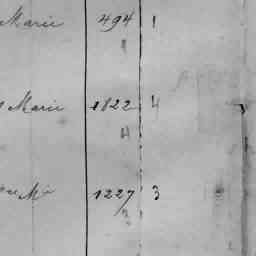 Marie 494 1
1
Marie 1822 4
4
Mie 1227 3
3